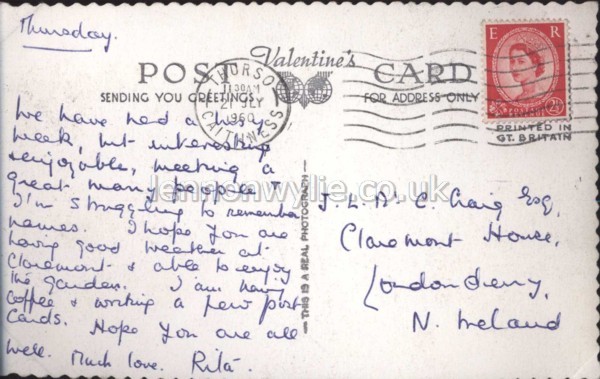 Thursday.
Valentine's
POST CARD
SENDING YOU GREETINGS
FOR ADDRESS ONLY
THURSO
11.30AM
21 JLY
1960
CAITHNESS
E R
POSTAGE REVENUE
2½D
PRINTED IN
GT. BRITAIN
We have had a busy
week, but interesting
& enjoyable, meeting a
great many people &
I'm struggling to remember
names. I hope you are
having good weather at
Claremont & able to enjoy
the garden. I am having
coffee & writing a few post
cards. Hope you are all
well. Much love. Rita.
THIS IS A REAL PHOTOGRAPH
J. L. McC. Craig Esq,
Claremont House,
Londonderry,
N. Ireland
lennonwylie.co.uk